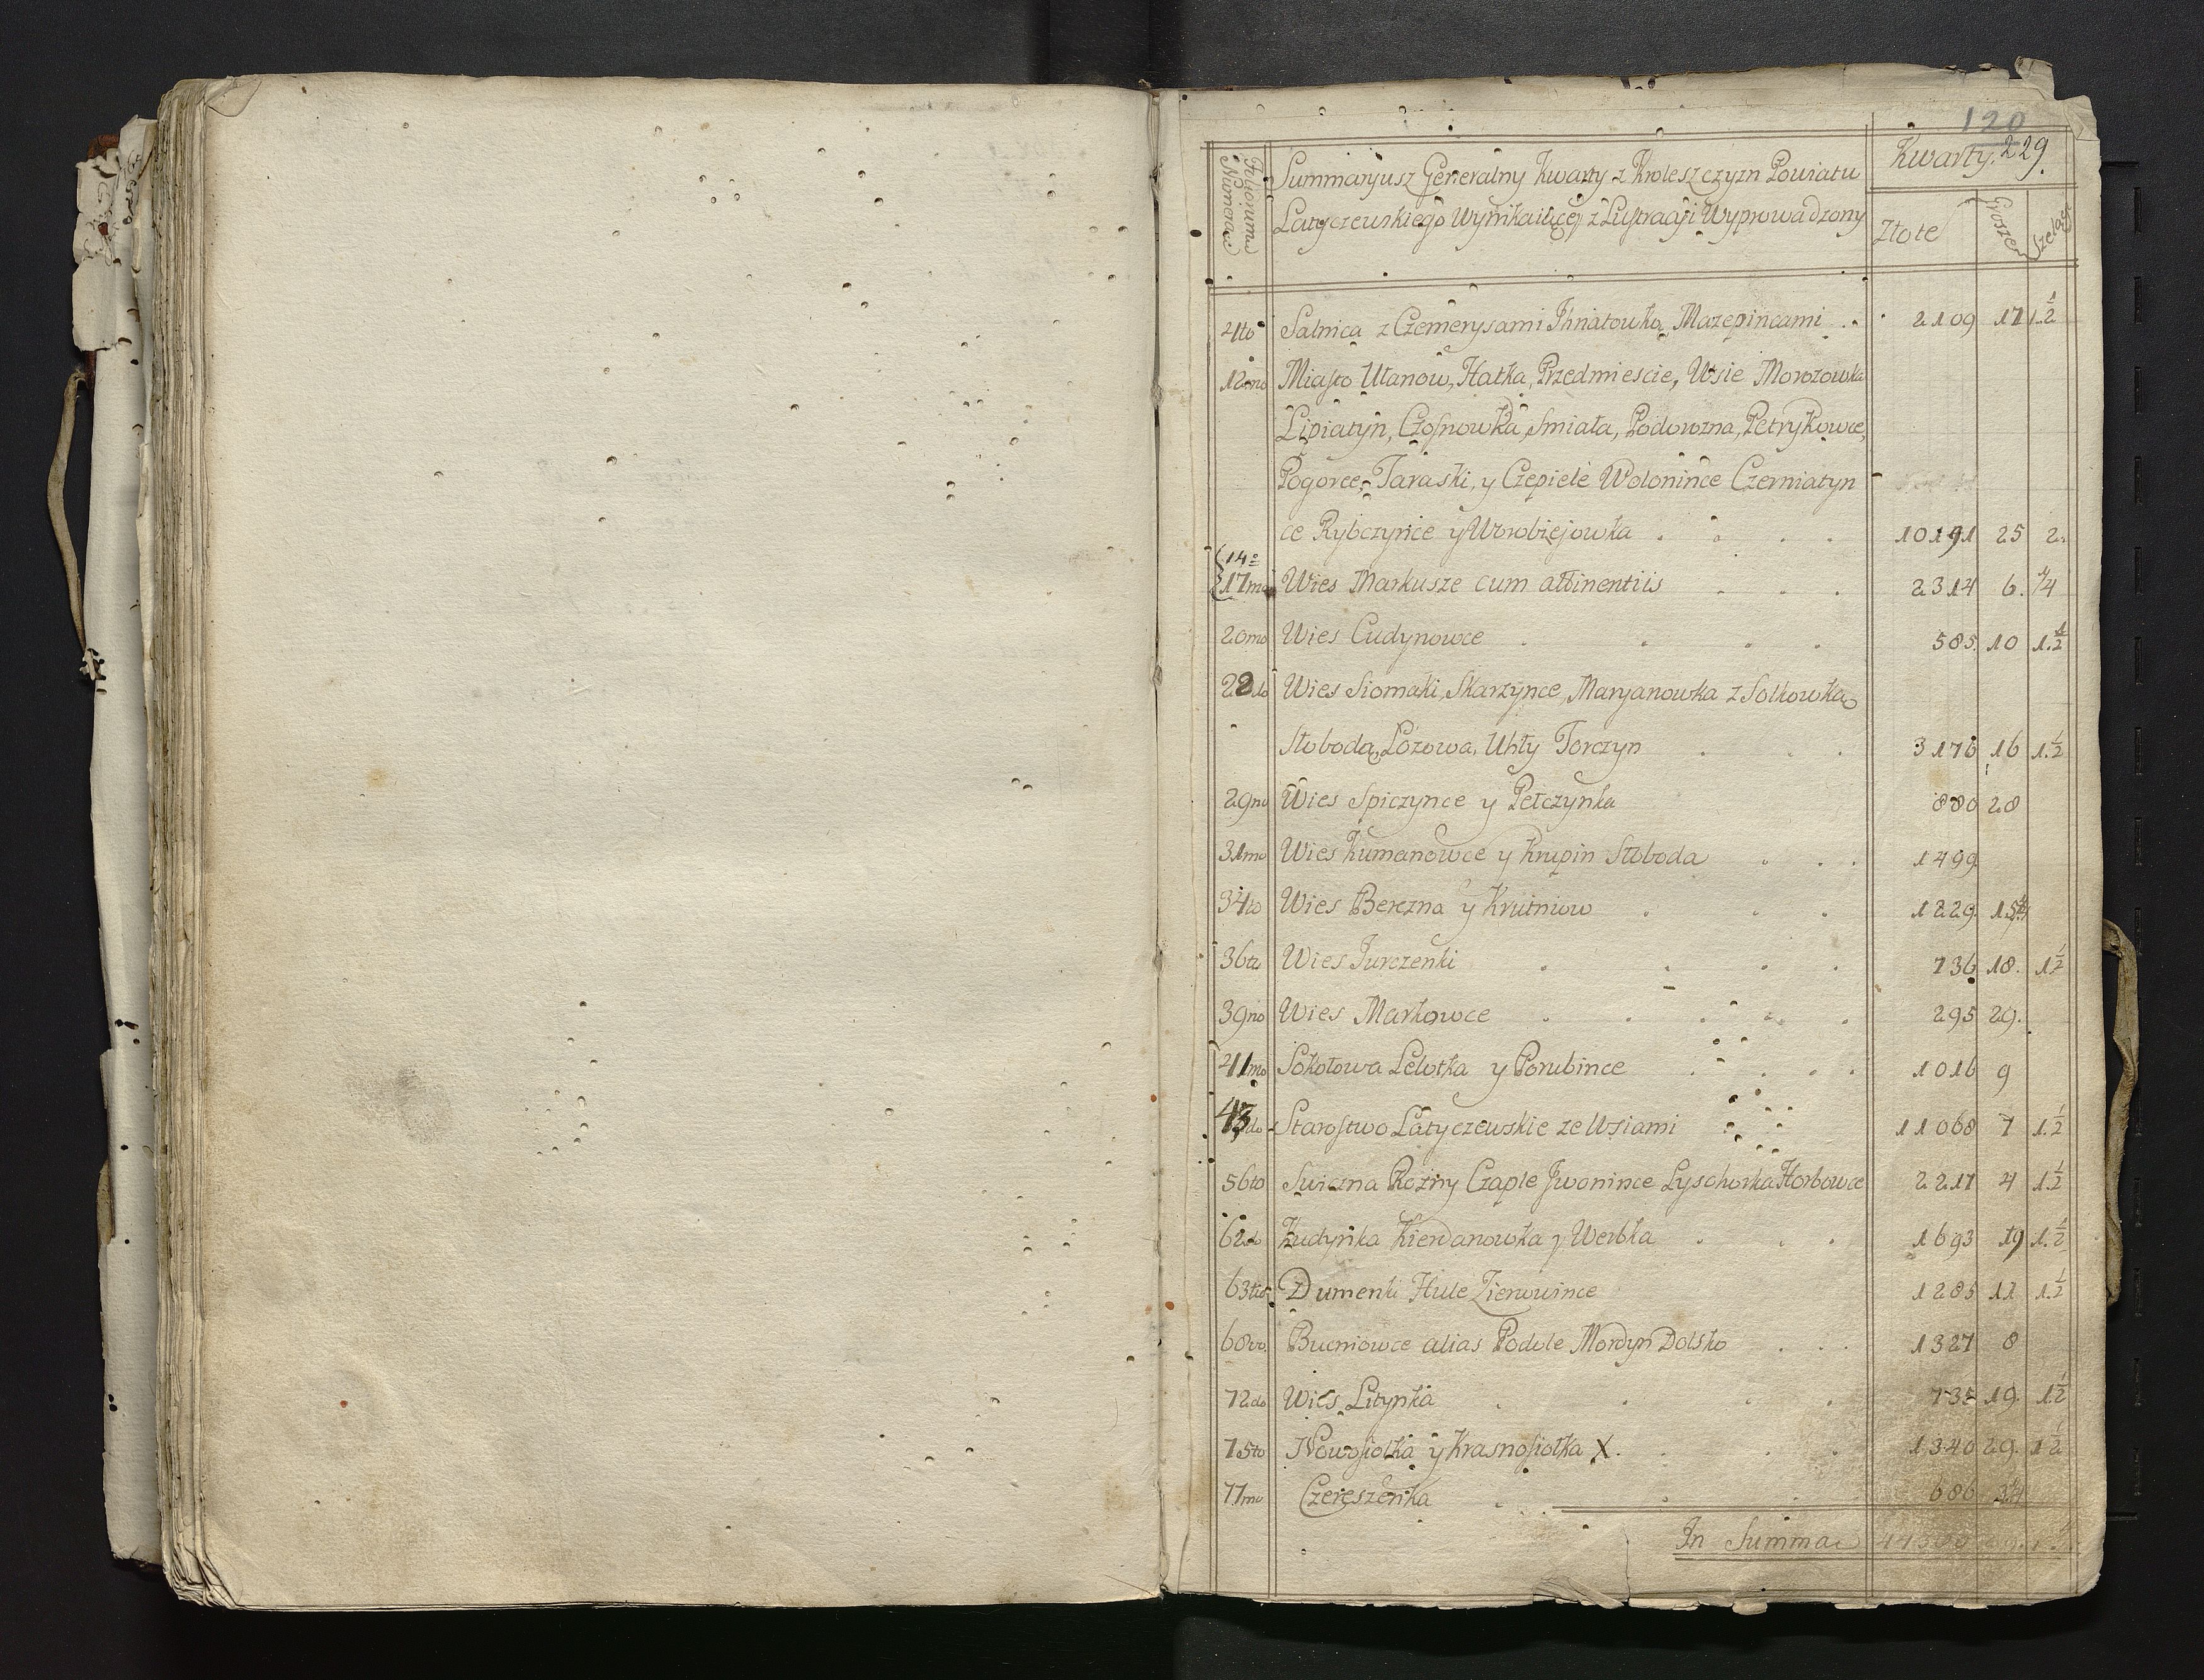 120
Foliorum Numera
Summaryusz Generalny Kwarty z Kroleszczyzn Powiatu
Latyczewskiego Wynikaiącey z Lustracyi Wyprowadzony
Kwarty. 229.
Złote Grosze Szelągi
4to Salnica z Czemerysami Ihnatowką Mazepincami . . 2109 17 1 1/2
12mo Miasto Ułanow, Hatka, Przedmiescie, Wsie Morozowka
Lipiatyn, Czosnowka, Smiała, Podorozna, Petrykowce,
Pogorce, Taraski, y Czepiele Wolonince Czerniatyn
ce Rybczynce y Worobiejowka . . . . 10191 25 2.
14o
17mo Wies Markusze cum attinentiis . . . 2314 6. 1/4
20mo Wies Cudynowce . . . . 585. 10 1. 1/2
22do Wies Siomaki, Skarzynce, Maryanowka z Solkowką
Słoboda, Lozowa, Uhły Torczyn . . . 3176 16 1. 1/2
29no Wies Spiczynce y Pełczynka 880 28
31mo Wies Kumanowce y Krupin Słoboda . . . 1499
34to Wies Berezna y Krutniow . . . 1229. 15
36to Wies Jurczenki . . . . 736 18. 1 1/2
39no Wies Markowce . . . . . 295 29.
41mo Sokołowa Lelotka y Porubince . . . . 1016 9
43 Starostwo Latyczewskie ze Wsiami 11068 7 1. 1/2
56to Swiczna Rozny Czaple Jwonince Łysohorka Horbowce 2217 4 1. 1/2
62do Kudynka Kierdanowka y Werbka . . . 1693 19 1. 1/2
63tio Dumenki Hule Zienowince 1285 11 1. 1/2
68vo Bucniowce alias Podole Mordyn Dolsko . . . 1327 8
72do Wies Litynka . . . . 735 19. 1 1/2
75to Nowosiołka y Krasnosiołka X. . . . 1340 29. 1 1/2
77mo Czereszenka . 686
In Summa